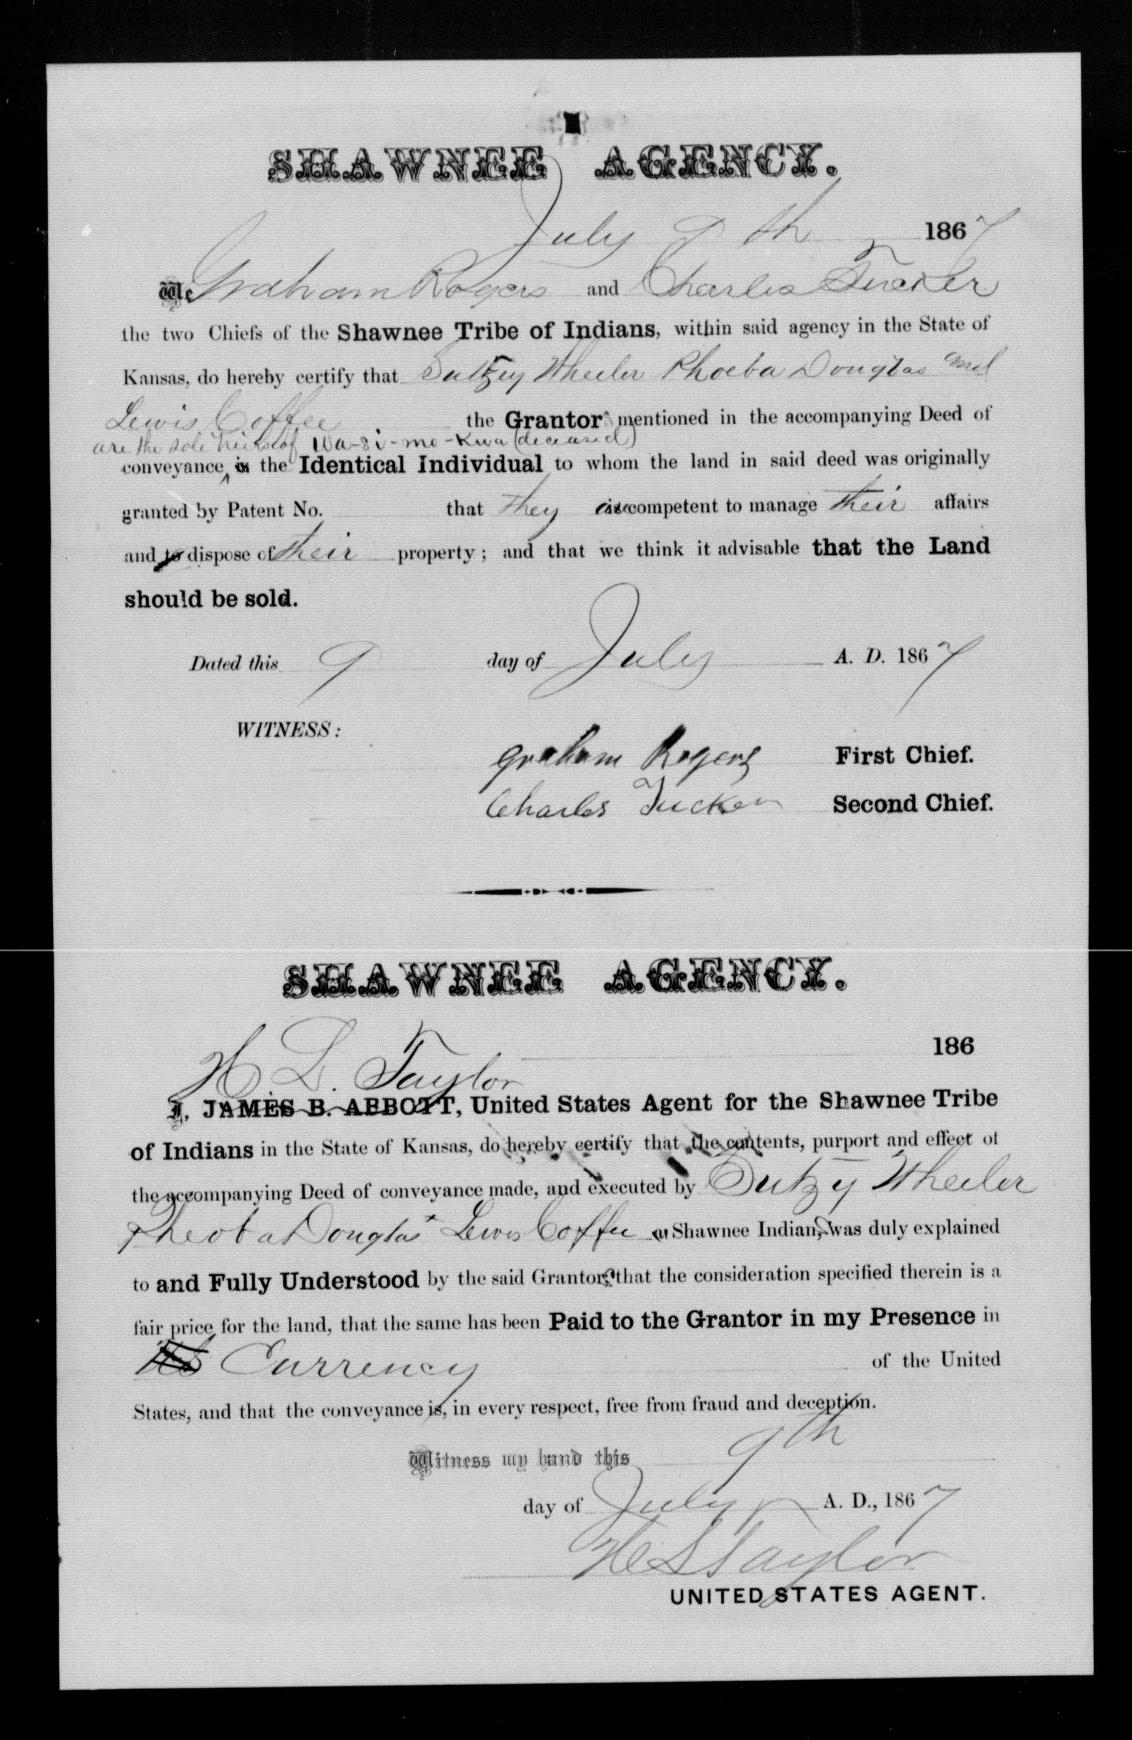 SHAWNEE AGENCY.
July 9th 1867
We Graham Rogers and Charles Tucker
the two Chiefs of the Shawnee Tribe of Indians, within said agency in the State of
Kansas, do hereby certify that Sutzey Wheeler Phoeba Douglas and
Lewis Coffee the Grantors mentioned in the accompanying Deed of
are the sole heirs of Wa-si-mo-Kwa (deceased)
conveyance, is the Identical Individual to whom the land in said deed was originally
granted by Patent No. that they are competent to manage their affairs
and to dispose of their property; and that we think it advisable that the Land
should be sold.
Dated this 9 day of July A. D. 1867
WITNESS:
Graham Rogers First Chief.
Charles Tucker Second Chief.
SHAWNEE AGENCY.
186
H L Taylor
I, JAMES B. ABBOTT, United States Agent for the Shawnee Tribe
of Indians in the State of Kansas, do hereby certify that the contents, purport and effect of
the accompanying Deed of conveyance made, and executed by Sutzy Wheeler
Pheoba Douglas Lewis Coffee a Shawnee Indians, was duly explained
to and Fully Understood by the said Grantors that the consideration specified therein is a
fair price for the land, that the same has been Paid to the Grantor in my Presence in
Currency of the United
States, and that the conveyance is, in every respect, free from fraud and deception.
Witness my hand this 9th
day of July A. D., 1867
H L Taylor
UNITED STATES AGENT.